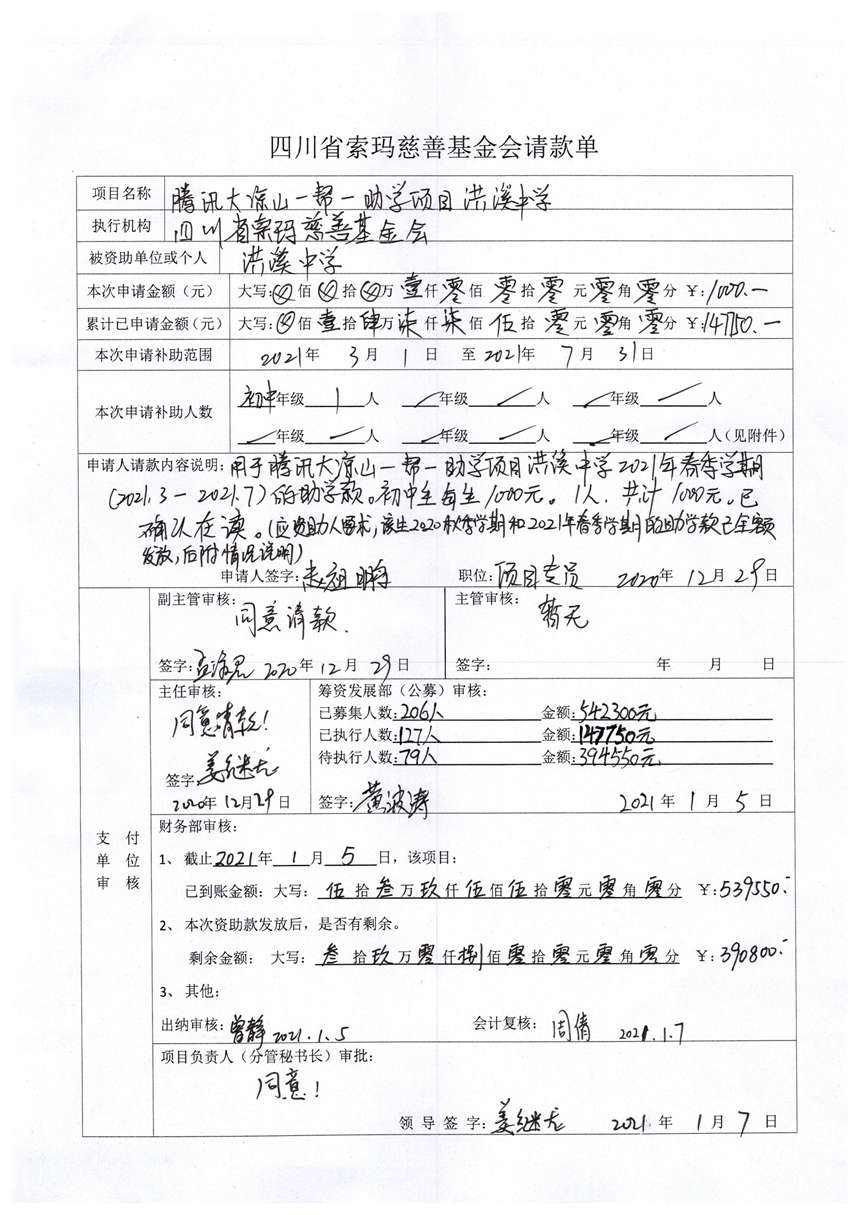 四川省索玛慈善基金会请款单
项目名称 腾讯大凉山一帮一助学项目洪溪中学
执行机构 四川省索玛慈善基金会
被资助单位或个人 洪溪中学
本次申请金额（元） 大写:⊗佰⊗拾⊗万壹仟零佰零拾零元零角零分 ￥:1000.—
累计已申请金额（元） 大写:⊗佰壹拾肆万柒仟柒佰伍拾零元零角零分 ￥:147750.—
本次申请补助范围 2021年3月1日 至2021年7月31日
本次申请补助人数 初中年级1人 年级 人 年级 人
年级 人 年级 人 年级 人（见附件）
申请人请款内容说明:用于腾讯大凉山一帮一助学项目洪溪中学2021年春季学期
(2021.3-2021.7)的助学款。初中生每生1000元。1人，共计1000元。已
确认在读。(应资助人要求，该生2020秋季学期和2021年春季学期的助学款已全额
发放，后附情况说明)
申请人签字: 职位:项目专员 2020年12月29日
支付单位审核
副主管审核: 同意请款. 主管审核: 暂无
签字: 2020年12月29日 签字: 年 月 日
主任审核: 同意请款! 筹资发展部（公募）审核:
已募集人数:206人 金额:542300元
已执行人数:127人 金额:147750元
待执行人数:79人 金额:394550元
签字:姜继尤 2020年12月29日 签字:黄波涛 2021年1月5日
财务部审核:
1、截止2021年1月5日，该项目:
已到账金额: 大写:伍拾叁万玖仟伍佰伍拾零元零角零分 ￥:539550.-
2、本次资助款发放后，是否有剩余。
剩余金额: 大写:叁拾玖万零仟捌佰零拾零元零角零分 ￥:390800.-
3、其他:
出纳审核:曾静 2021.1.5 会计复核:周倩 2021.1.7
项目负责人（分管秘书长）审批:
同意!
领导签字:姜继尤 2021年1月7日